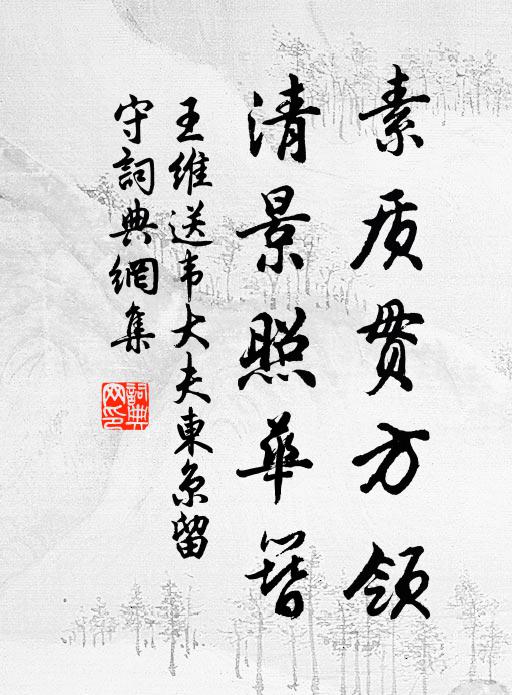 素质贯方领
清景照華簪
王维送韦大夫東京留
守詞典網集
詞典
网印